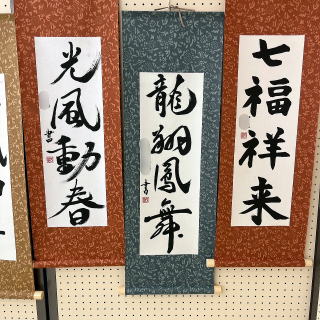 七福祥来
龍翔鳳舞
書
光風動春
書